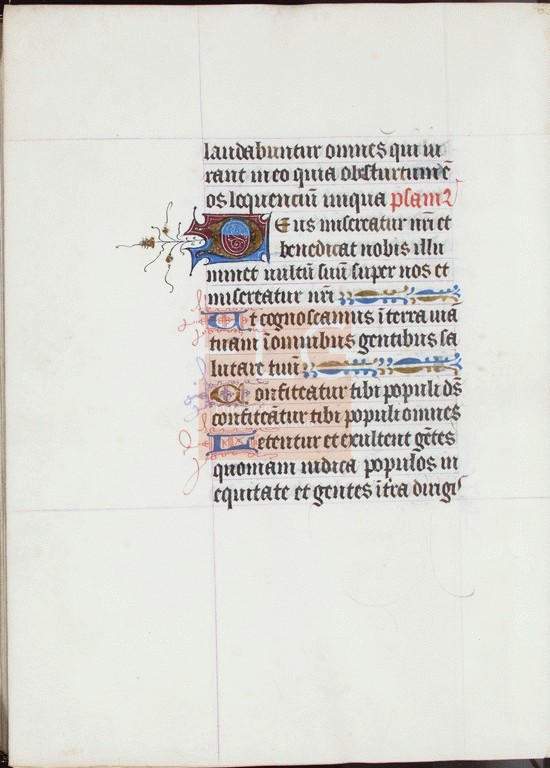 laudabuntur omnes qui iu
rant in eo quia obstructum ē
os loquenciū iniqua psalm9
Deus misereatur nr̄i et
benedicat nobis illu
minet vultū suū super nos et
misereatur nr̄i
Ut cognoscamus ī terra viā
tuam ī omnibus gentibus sa
lutare tuū
Confiteatur tibi populi ds̄
confiteātur tibi populi omnes
Letentur et exultent gētes
quoniam iudica populos in
equitate et gentes ī tra dirigis